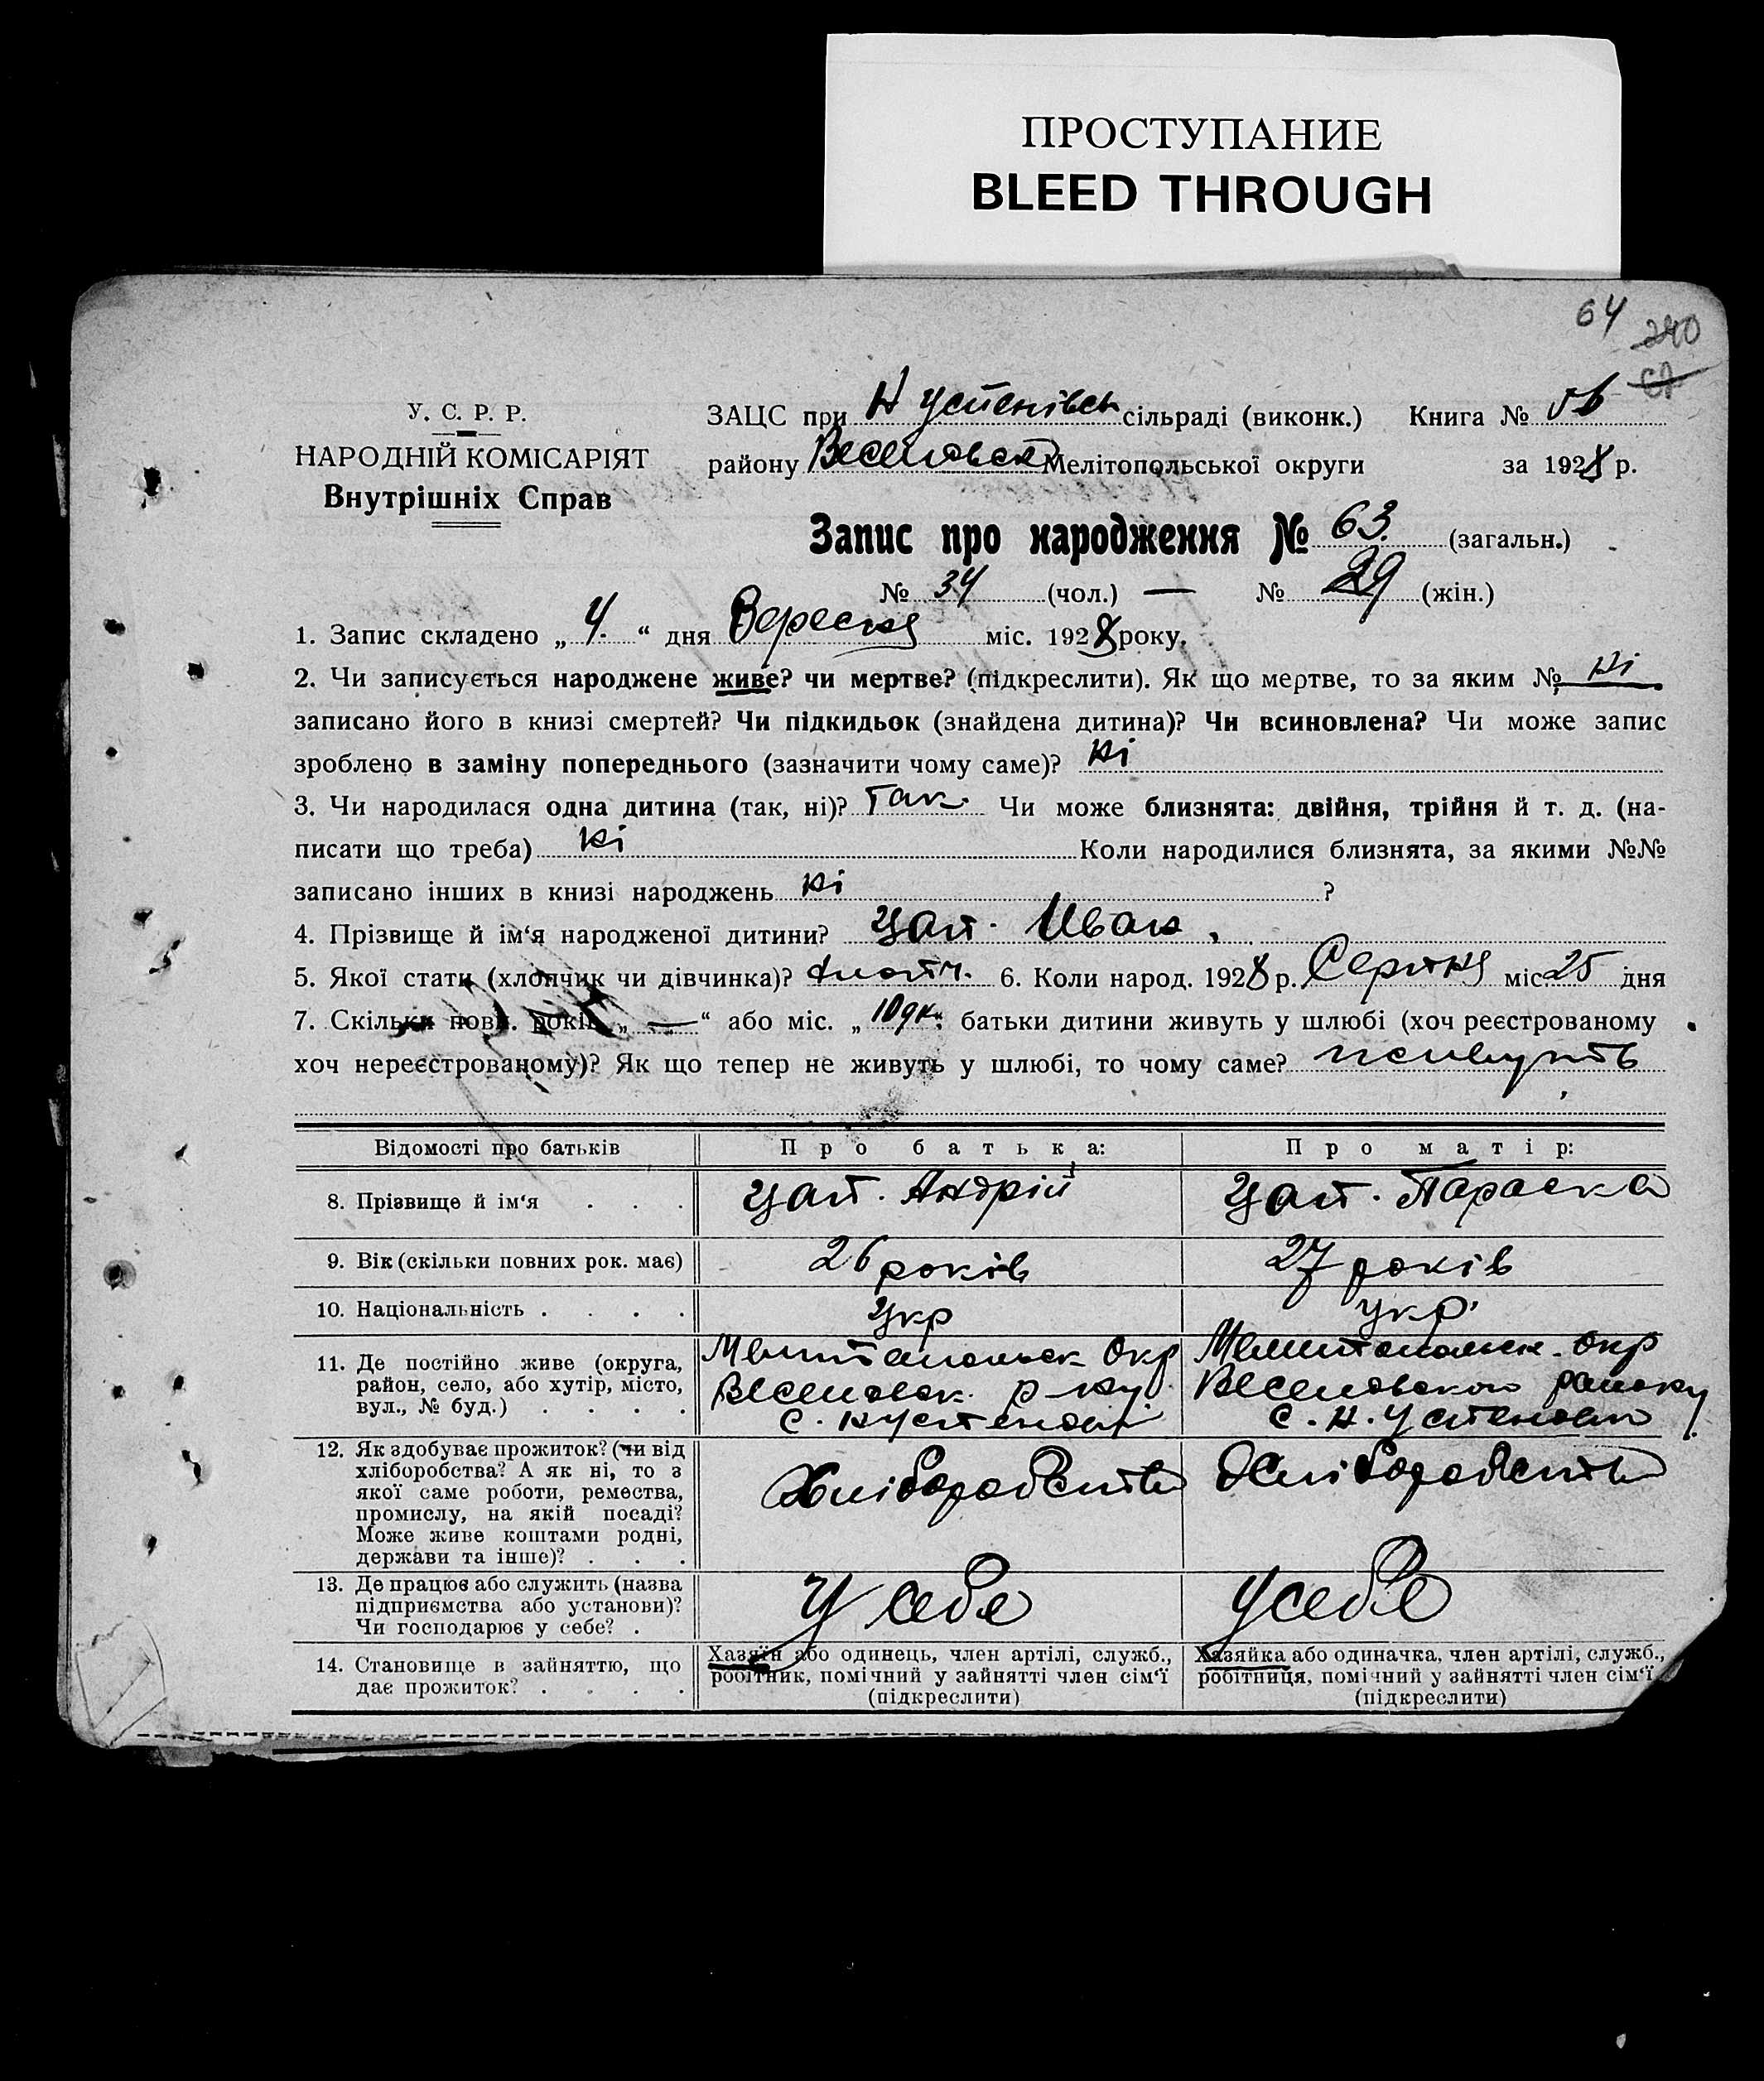 ПРОСТУПАНИЕ
BLEED THROUGH
64
240
У. С. Р. Р.
НАРОДНІЙ КОМІСАРІЯТ
Внутрішніх Справ
ЗАЦС при Н Успенівськ сільраді (виконк.) Книга №
району Веселовськ Мелітопольської округи за 1928 р.
Запис про народження № 63. (загальн.)
№ 34 (чол.) — № 29 (жін.)
1. Запис складено „ 4. “ дня Вересня міс. 1928 року.
2. Чи записується народжене живе? чи мертве? (підкреслити). Як що мертве, то за яким № ні
записано його в книзі смертей? Чи підкидьок (знайдена дитина)? Чи всиновлена? Чи може запис
зроблено в заміну попереднього (зазначити чому саме)? ні
3. Чи народилася одна дитина (так, ні)? Так. Чи може близнята: двійня, трійня й т. д. (на-
писати що треба) ні Коли народилися близнята, за якими №№
записано інших в книзі народжень ні ?
4. Прізвище й ім‘я народженої дитини? Цап. Иван.
5. Якої стати (хлопчик чи дівчинка)? хлопч. 6. Коли народ. 1928 р. Серпня міс. 25 дня
7. Скільки повн. років „ — “ або міс. „ “ батьки дитини живуть у шлюбі (хоч реєстрованому
хоч нереєстрованому)? Як що тепер не живуть у шлюбі, то чому саме? живуть
Відомості про батьків Про батька: Про матір:
8. Прізвище й ім‘я . . . Цап. Андрій Цап. Параска
9. Вік (скільки повних рок. має) 26 років 27 років
10. Національність . . . . Укр укр.
11. Де постійно живе (округа, район, село, або хутір, місто, вул., № буд.) . . . .
Мелитопольск Окр Мелитопольск. окр
Веселовск. р-ну Веселовского району
с. Н Успеновці с. Н. Успеновки
12. Як здобуває прожиток? (чи від хліборобства? А як ні, то з якої саме роботи, ремества, промислу, на якій посаді? Може живе коштами родні, держави та інше)? . . .
Хліборобство Хліборобство
13. Де працює або служить (назва підприємства або установи)? Чи господарює у себе? .
У себе У себе
14. Становище в зайняттю, що дає прожиток? . . . .
Хазяїн або одинець, член артілі, служб., робітник, помічний у зайнятті член сім‘ї (підкреслити)
Хазяйка або одиначка, член артілі, служб., робітниця, помічний у зайнятті член сім‘ї (підкреслити)